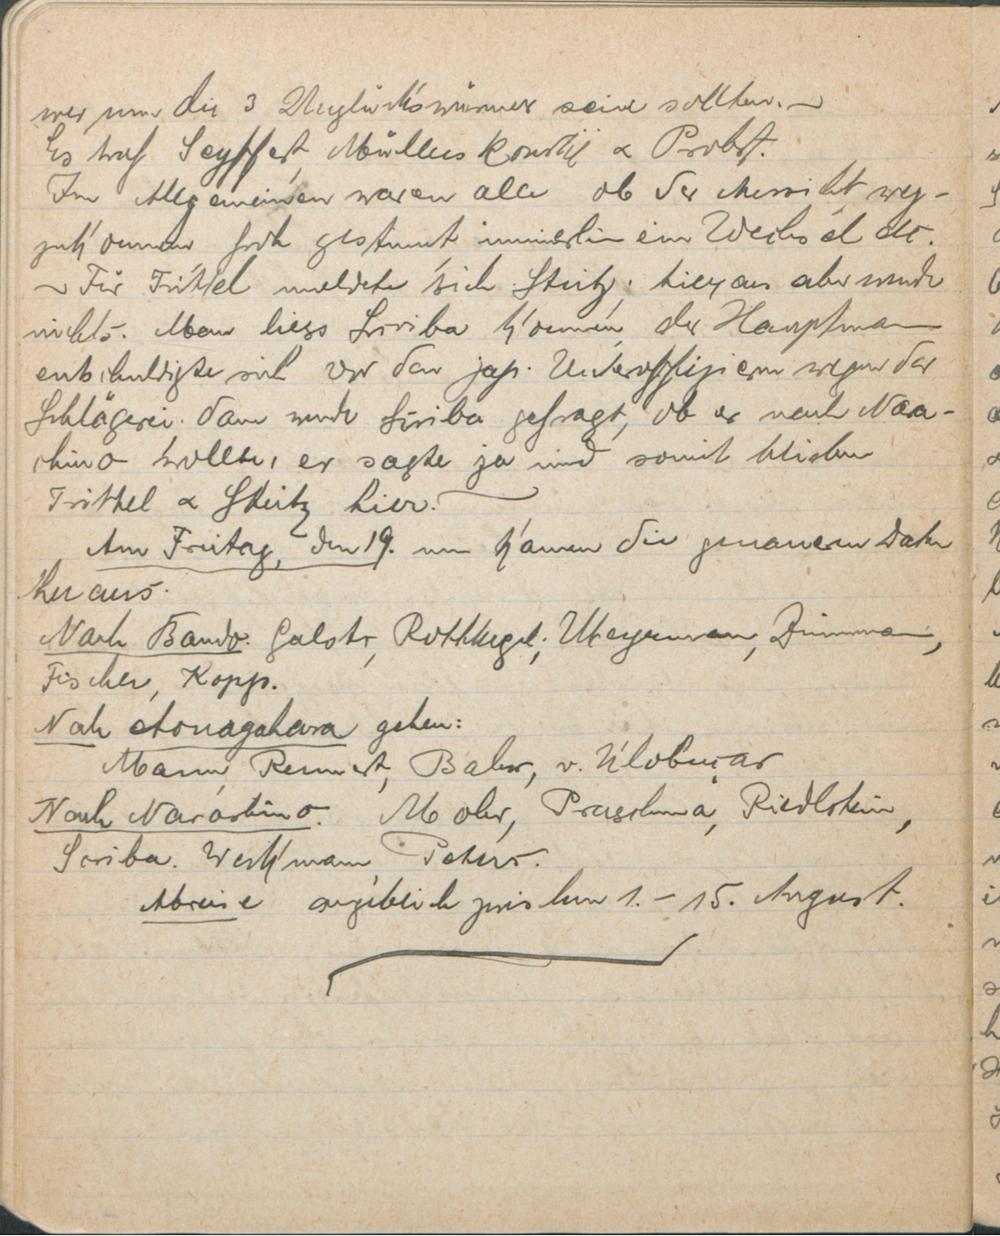 wer nun die 3 Unglückswürmer sein sollten. —
Es traf Seyffert, Müllers & Probst.
Im Allgemeinen waren alle ob der Aussicht weg-
zukommen froh gestimmt immerhin ein Wechsel etc.
— Für Trittel meldete sich Steitz, hieraus aber wurde
nichts. Man liess Scriba kommen, der Hauptmann
entschuldigte sich vor den jap. Unteroffizieren wegen der
Schlägerei. Dann wurde Scriba gefragt, ob er nach Nara-
shino wollte, er sagte ja und somit blieben
Trittel & Steitz hier.
Am Freitag, den 19. nun kamen die genaueren Daten
heraus.
Nach Bando. Galster, Rothkegel, Meyermann, Zimmermann,
Fischer, Kopp.
Nach Aonagahara gehen:
Mann, Rennert, Bahr, v. Klobuçar
Nach Narashino. Mohr, Riedlstein,
Scriba. Werkmann, Peters.
Abreise angeblich zwischen 1. – 15. August.